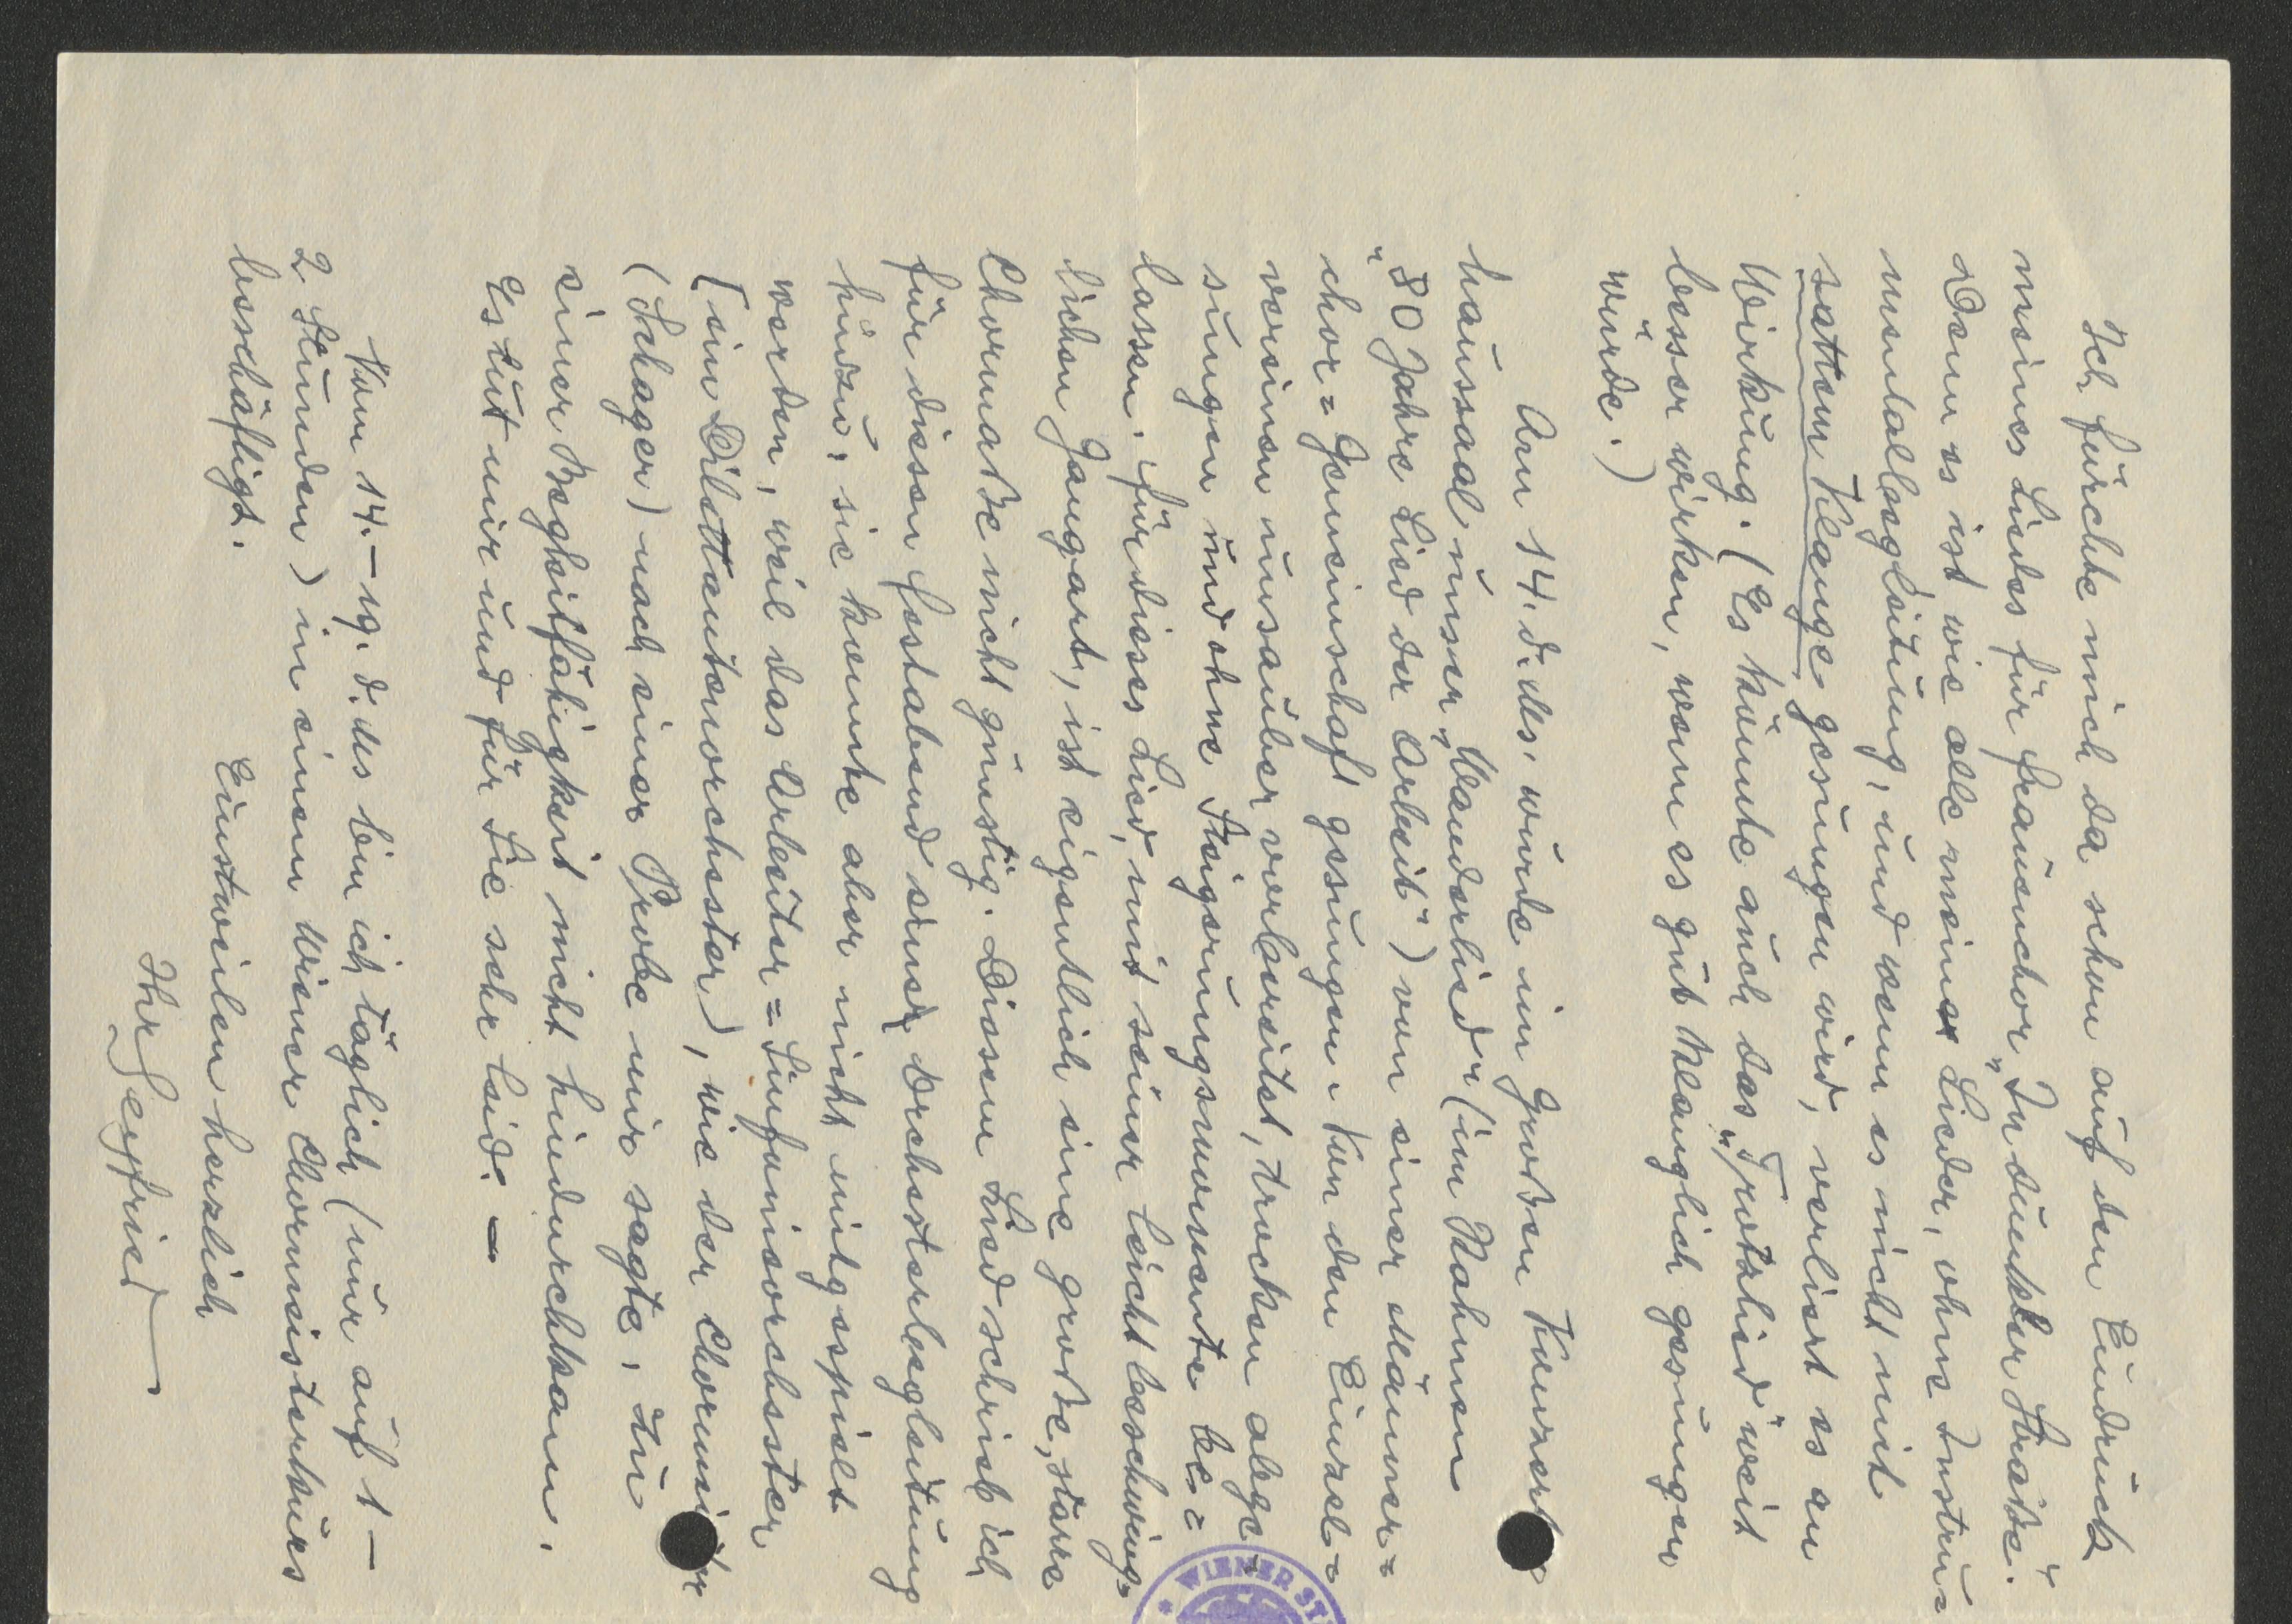 Ich fürchte mich da schon auf den Eindruck
meines Liedes für Frauenchor „In dunkler Straße".
Denn es ist wie alle meine Lieder, ohne Instru=
mentalbegleitung, und wenn es nicht mit
sattem Klange gesungen wird, verliert es an
Wirkung. (Es könnte auch das „Trotzlied" weit
besser wirken, wenn es gut klanglich gesungen
würde.)
Am 14. d. Ms. wurde im Großen Konzert
haussaal unser „Wanderlied" (im Rahmen
„80 Jahre Lied der Arbeit") von einer Männer=
chor=Gemeinschaft gesungen. Von den Einzel=
vereinen unsauber vorbereitet, trocken abge=
sungen und ohne Steigerungsmomente be=
lassen. Für dieses Lied, mit seiner leicht beschwing=
lichen Gangart, ist eigentlich eine große, starre
Chormasse nicht günstig. Diesem Lied schrieb ich
für diesen Festabend eine Orchesterbegleitung
hinzu, sie konnte aber nicht mitgespielt
werden, weil das Arbeiter=Sinfonieorchester
[ein Dilettantenorchester), wie der Chormeister
(Schager) nach einer Probe mir sagte, zu
einer Begleitfähigkeit nicht hindurchkam.
Es tut mir und für Sie sehr leid. —
Vom 14.–19. d. Ms bin ich täglich (nur auf 1 –
2 Stunden) in einem Wiener Chormeisterkurs
beschäftigt.
Einstweilen herzlich
Ihr Seyfried
WIENER ST